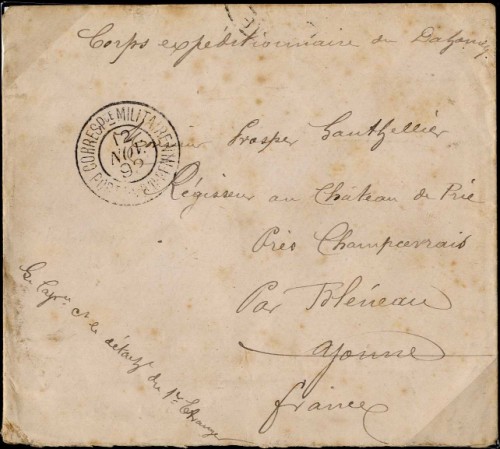 Corps expéditionnaire du Dahomey
CORRESP.CE MILITAIRE
12
NOV.
92
Prosper Gauthellier
Régisseur au Château de Prie
Près Champcevrais
Par Bléneau
Yonne
France
Le Cap.ne Ct le détacht du 1er Etranger